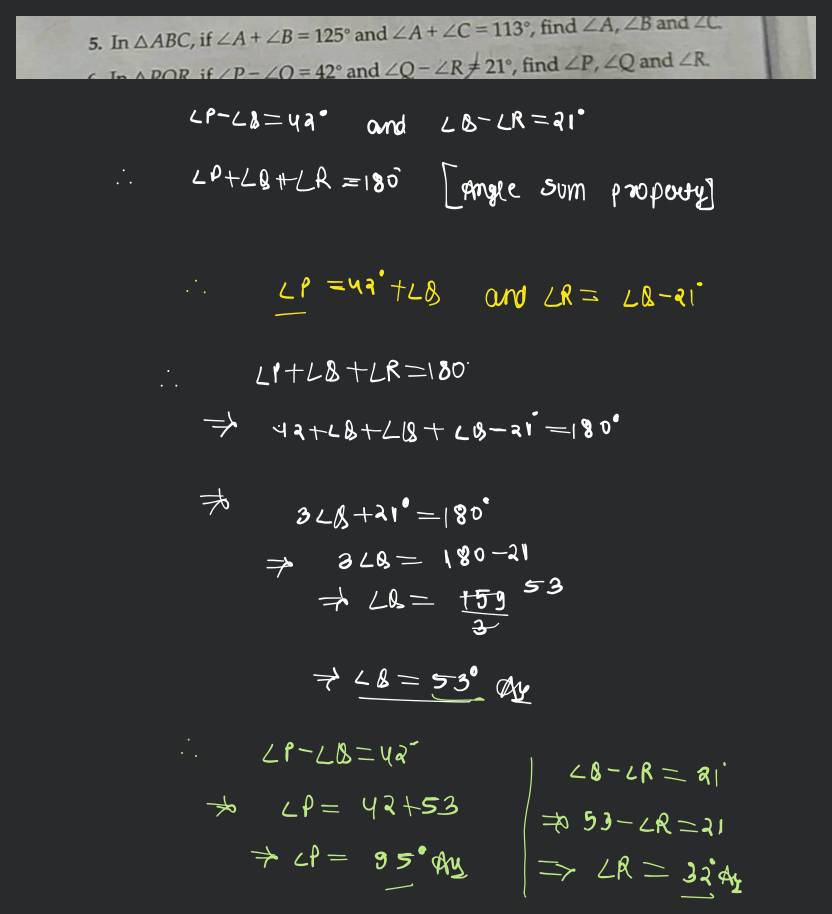 5. In △ABC, if ∠A + ∠B = 125° and ∠A + ∠C = 113°, find ∠A, ∠B and ∠C.
In △PQR, if ∠P – ∠Q = 42° and ∠Q – ∠R = 21°, find ∠P, ∠Q and ∠R.
∠P-∠Q=42° and ∠Q-∠R=21°
∴ ∠P+∠Q+∠R=180° [Angle sum property]
∴ ∠P=42°+∠Q and ∠R= ∠Q-21°
∴ ∠P+∠Q+∠R=180°
⇒ 42+∠Q+∠Q+∠Q-21°=180°
⇒ 3∠Q+21°=180°
⇒ 3∠Q= 180-21
⇒ ∠Q= 159/3 53
⇒ ∠Q=53° Ay
∴ ∠P-∠Q=42°
⇒ ∠P= 42+53
⇒ ∠P= 95° Ay
∠Q-∠R= 21°
⇒ 53-∠R=21
⇒ ∠R= 32° Ay